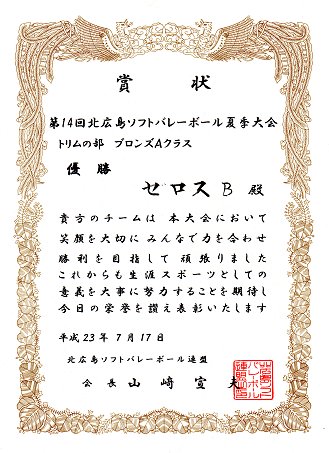 賞状
第14回北広島ソフトバレーボール夏季大会
トリムの部 ブロンズAクラス
優勝
ゼロスB 殿
貴方のチームは 本大会において
笑顔を大切に みんなで力を合わせ
勝利を目指して 頑張りました
これからも生涯スポーツとしての
意義を大事に努力することを期待し
今日の栄誉を讃え表彰いたします
平成23年 7月17日
北広島ソフトバレーボール連盟
会長 山崎宣夫